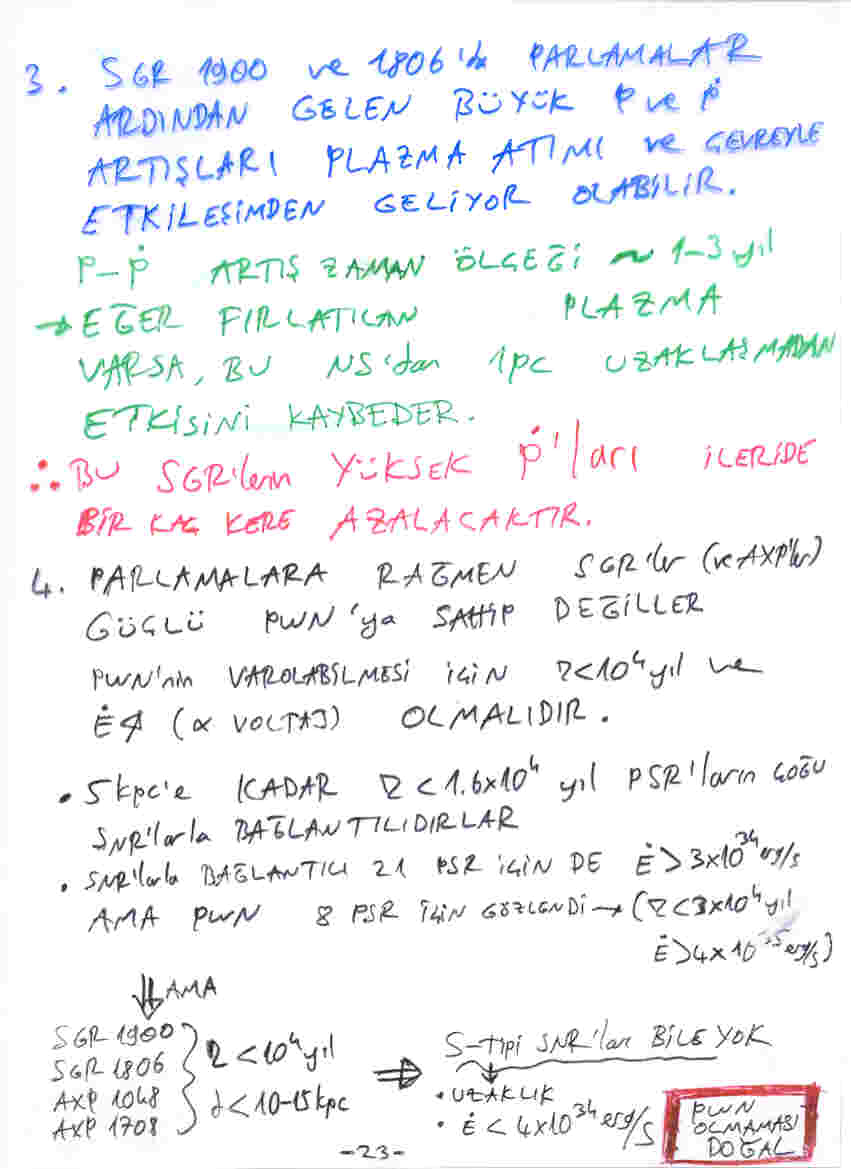 3. SGR 1900 ve 1806'da PARLAMALAR
ARDINDAN GELEN BÜYÜK P ve Ṗ
ARTIŞLARI PLAZMA ATIMI ve ÇEVREYLE
ETKİLEŞİMDEN GELİYOR OLABİLİR.
P-Ṗ ARTIŞ ZAMAN ÖLÇEĞİ ~ 1-3 yıl
→ EĞER FIRLATILAN PLAZMA
VARSA, BU NS'dan 1pc UZAKLAŞMADAN
ETKİSİNİ KAYBEDER.
∴ BU SGR'lerin YÜKSEK Ṗ'ları İLERİDE
BİR KAÇ KERE AZALACAKTIR.
4. PARLAMALARA RAĞMEN SGR'ler (ve AXP'ler)
GÜÇLÜ PWN'ya SAHİP DEĞİLLER
PWN'nin VAROLABİLMESİ İÇİN τ<10⁴ yıl ve
Ė (∝ VOLTAJ) OLMALIDIR.
• 5kpc'e KADAR τ < 1.6x10⁴ yıl PSR'ların ÇOĞU
SNR'larla BAĞLANTILIDIRLAR
• SNR'larla BAĞLANTILI 21 PSR İÇİN DE Ė > 3x10³⁴ erg/s
AMA PWN 8 PSR İÇİN GÖZLENDİ → (τ<3x10⁴ yıl
Ė>4x10³⁵ erg/s)
⇓ AMA
SGR 1900
SGR 1806
AXP 1048
AXP 1708
τ < 10⁴ yıl
d < 10-15kpc
⇒ S-tipi SNR'ları BİLE YOK
• UZAKLIK
• Ė < 4x10³⁴ erg/s
PWN
OLMAMASI
DOĞAL
-23-